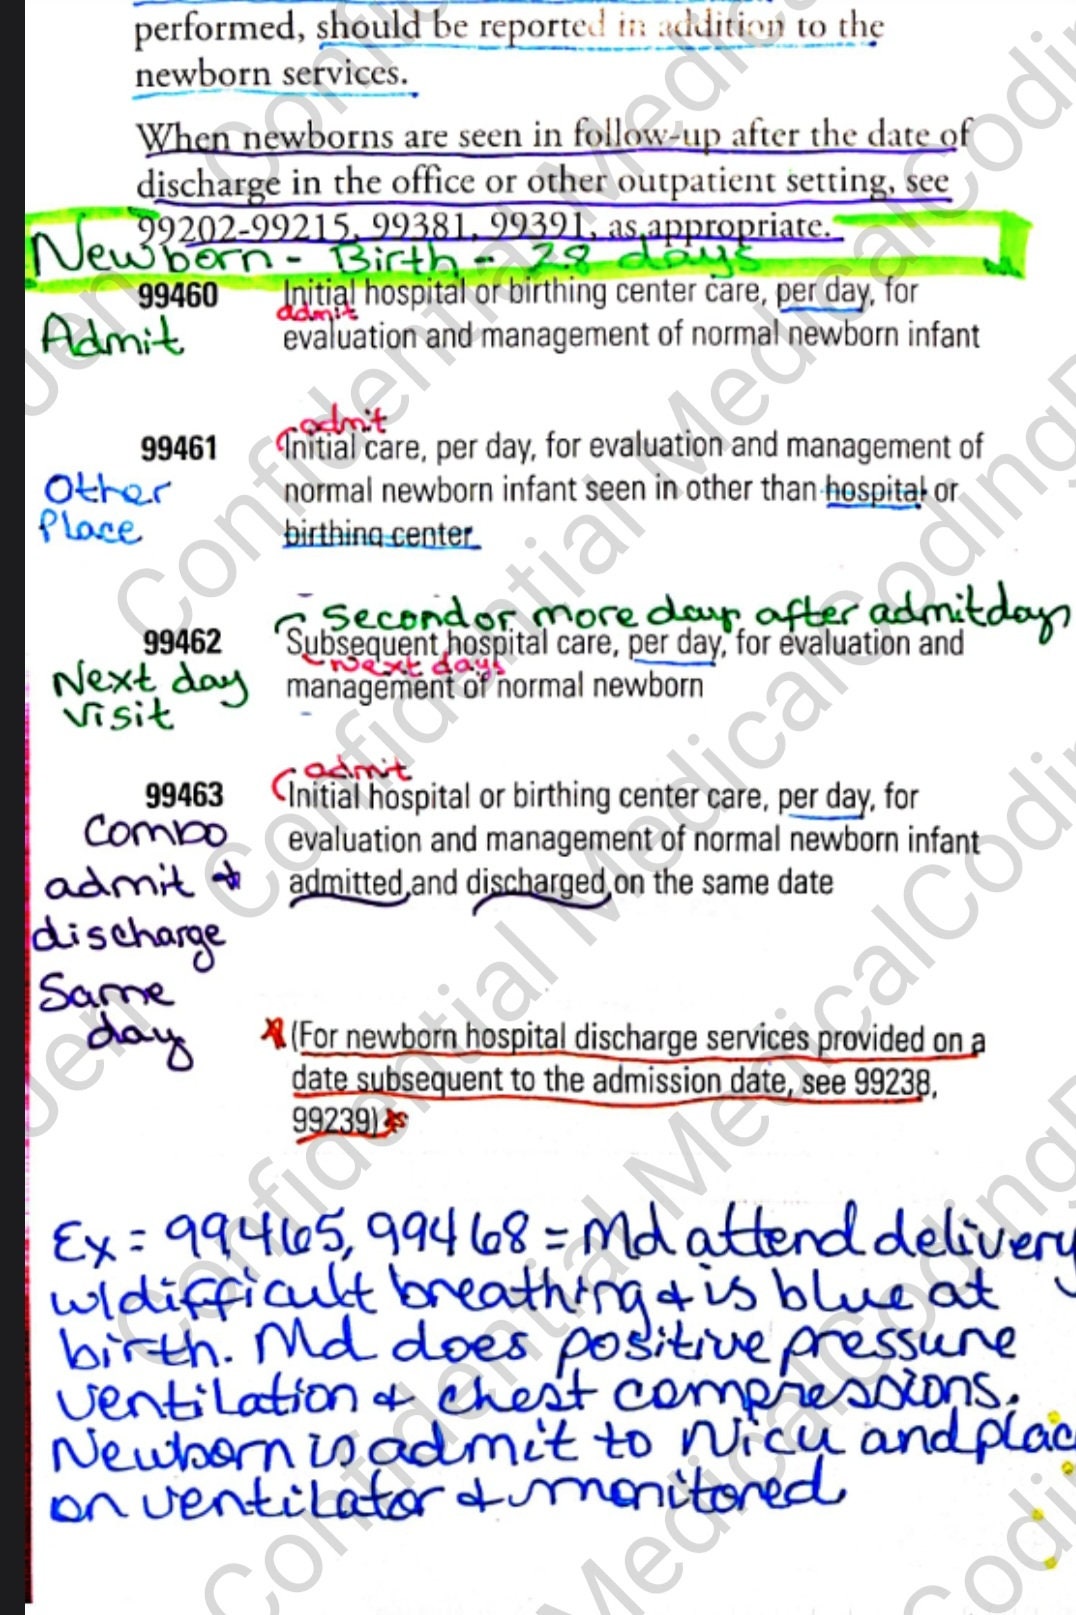 performed, should be reported in addition to the
newborn services.
When newborns are seen in follow-up after the date of
discharge in the office or other outpatient setting, see
99202-99215, 99381, 99391, as appropriate.
Newborn - Birth - 28 days
99460 Initial hospital or birthing center care, per day, for
admit
Admit evaluation and management of normal newborn infant
admit
99461 Initial care, per day, for evaluation and management of
Other normal newborn infant seen in other than hospital or
Place birthing center
Second or more days after admit days
99462 Subsequent hospital care, per day, for evaluation and
Next days
Next day management of normal newborn
visit
admit
99463 Initial hospital or birthing center care, per day, for
Combo evaluation and management of normal newborn infant
admit + admitted and discharged on the same date
discharge
Same
day
(For newborn hospital discharge services provided on a
date subsequent to the admission date, see 99238,
99239)
Ex = 99465, 99468 = Md attend delivery
w/difficult breathing + is blue at
birth. Md does positive pressure
ventilation + chest compressions.
Newborn is admit to Nicu and plac
on ventilator + monitored
Confidential MedicalCoding